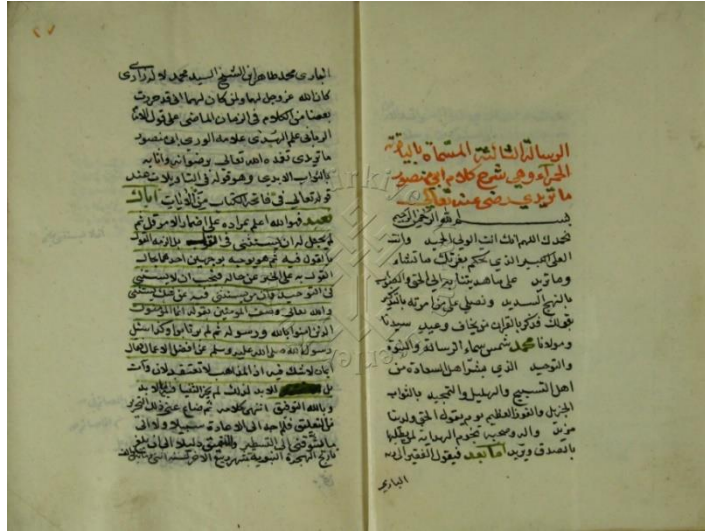 الرسالة الثالثة المسماة بالياقوتة
الحمراء وهي شرح كلام ابي منصور
ماتريدي رضي عنه تعالى
بسم الله الرحمن الرحيم
نحمدك اللهم انك انت الولي الحميد وانت
العلي الذي تحكم بعزتك ما تشاء
وما تريد على ما هديتنا به الى الحق
بالنهج السديد ونصلي على من امرته
فذكر بالقرآن من يخاف وعيد سيدنا
ومولانا محمد شمس سماء الرسالة والنبوة
والتوحيد الذي اهل السعادة من
اهل التسبيح والتهليل والتمجيد بالثواب
الجزيل والفوز العظيم يوم يقول الحق ولدينا
مزيد واله وصحبه نجوم الهداية
بالصدق ويريد اما بعد فيقول الفقير الى
الباري
٢٧
الباري محمد طاهر ابن الشيخ السيد محمد لاله زاري
كان الله عز وجل لهما ولمن كان لهما اني قد حررت
بعضا من الكلام في الزمان الماضي على قول الامام
الرباني علم الهدى علامة الورى ابي منصور
ماتريدي تغمده الله تعالى برضوانه واثابه
بالثواب الابدي وهو قوله في التأويلات عند
قوله تعالى في فاتحة الكتاب من الايات اياك
نعبد فهو الله اعلم بمراده على اضمار الامر قل ثم
لم يجعل له ان يستثني في القول بل الزمه القول
بالقول فيه ثم هو يوجه بوجهين احدهما
القول به على الخبر عن حاله فيجب ان لا يستثني
في التوحيد وان من يستثني فيه عن شك يستثني
والله تعالى وصف المؤمنين بقوله انما المؤمنون
الذين امنوا بالله ورسوله ثم لم يرتابوا وكذا سئل
رسول الله صلى الله عليه وسلم عن افضل الاعمال فقال
ايمان لا شك فيه
بل الابد لذلك لم يجز الثنيا في الابد
وبالله التوفيق انتهى كلامه ثم ضاع عني ذلك التحرير
من التعليق فلم اجد الى الاعادة سبيلا ولا اني
الى التسطير دليلا الى ان بلغ
تاريخ الهجرة النبوية شهر ربيع الاخر